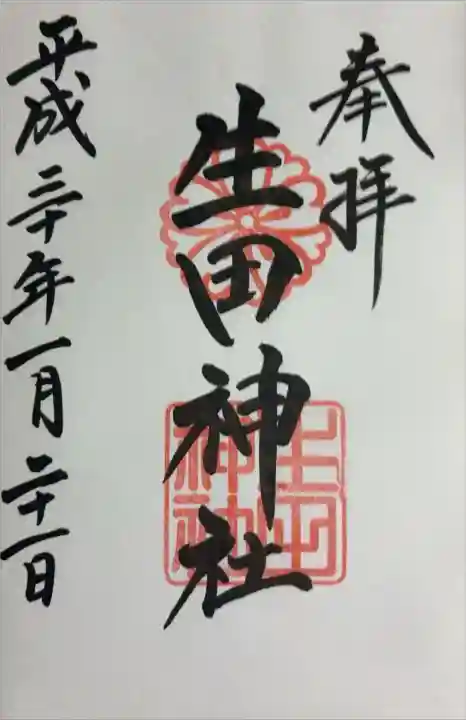 奉拝
生田神社
生田神社
平成三十年一月二十一日